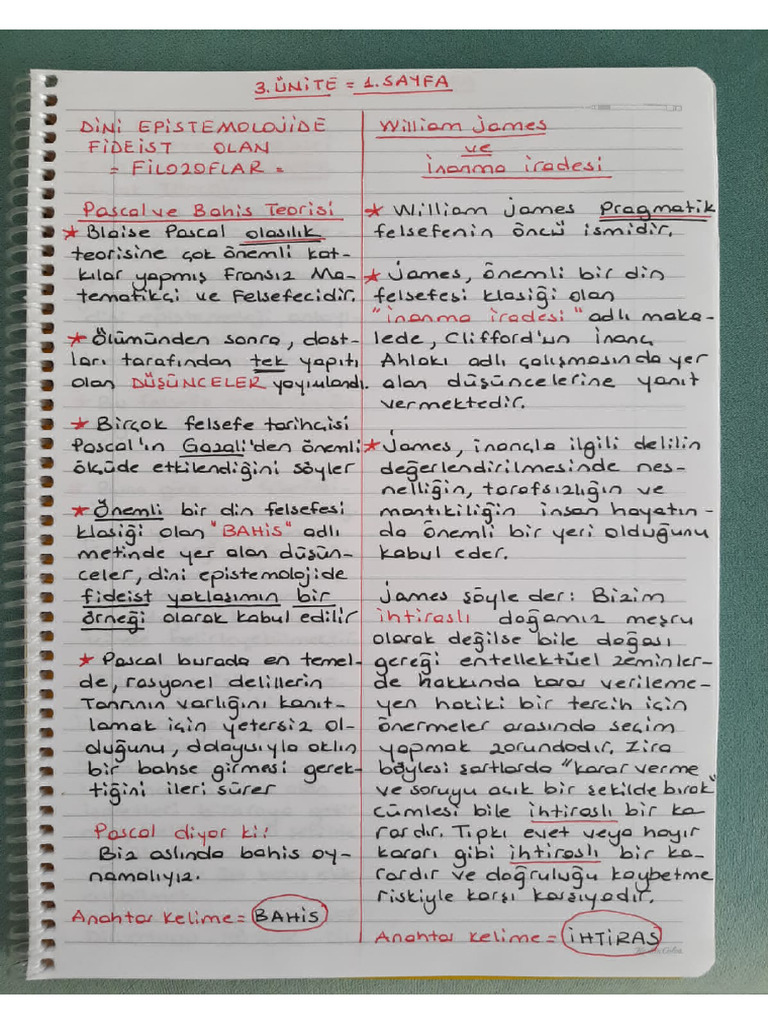 3. ÜNİTE = 1. SAYFA
DİNİ EPİSTEMOLOJİDE
FİDEİST OLAN
= FİLOZOFLAR =
Pascal ve Bahis Teorisi
★ Blaise Pascal olasılık
teorisine çok önemli kat-
kılar yapmış Fransız Ma-
tematikçi ve Felsefecidir.
★ Ölümünden sonra, dost-
ları tarafından tek yapıtı
olan DÜŞÜNCELER yayımlandı.
★ Birçok felsefe tarihçisi
Pascal'ın Gazali'den önemli
ölçüde etkilendiğini söyler
★ Önemli bir din felsefesi
klasiği olan "BAHİS" adlı
metinde yer alan düşün-
celer, dini epistemolojide
fideist yaklaşımın bir
örneği olarak kabul edilir
★ Pascal burada en temel-
de, rasyonel delillerin
Tanrının varlığını kanıt-
lamak için yetersiz ol-
duğunu, dolayısıyla aklın
bir bahse girmesi gerek-
tiğini ileri sürer
Pascal diyor ki!
Biz aslında bahis oy-
namalıyız.
Anahtar Kelime = BAHİS
William James
ve
İnanma iradesi
★ William James Pragmatik
felsefenin öncü ismidir.
★ James, önemli bir din
felsefesi klasiği olan
"İnanma iradesi" adlı maka-
lede, Clifford'un İnanç
Ahlakı adlı çalışmasında yer
alan düşüncelerine yanıt
vermektedir.
★ James, inançla ilgili delilin
değerlendirilmesinde nes-
nelliğin, tarafsızlığın ve
mantıkiliğin insan hayatın-
da önemli bir yeri olduğunu
kabul eder.
James şöyle der: Bizim
ihtiraslı doğamız meşru
olarak değilse bile doğası
gereği entellektüel zeminler-
de hakkında karar verileme-
yen hakiki bir tercih için
önermeler arasında seçim
yapmak zorundadır. Zira
böylesi şartlarda "karar verme
ve soruyu açık bir şekilde bırak"
cümlesi bile ihtiraslı bir ka-
rardır. Tıpkı evet veya hayır
kararı gibi ihtiraslı bir ka-
rardır ve doğruluğu kaybetme
riskiyle karşı karşıyadır.
Anahtar Kelime = İHTİRAS